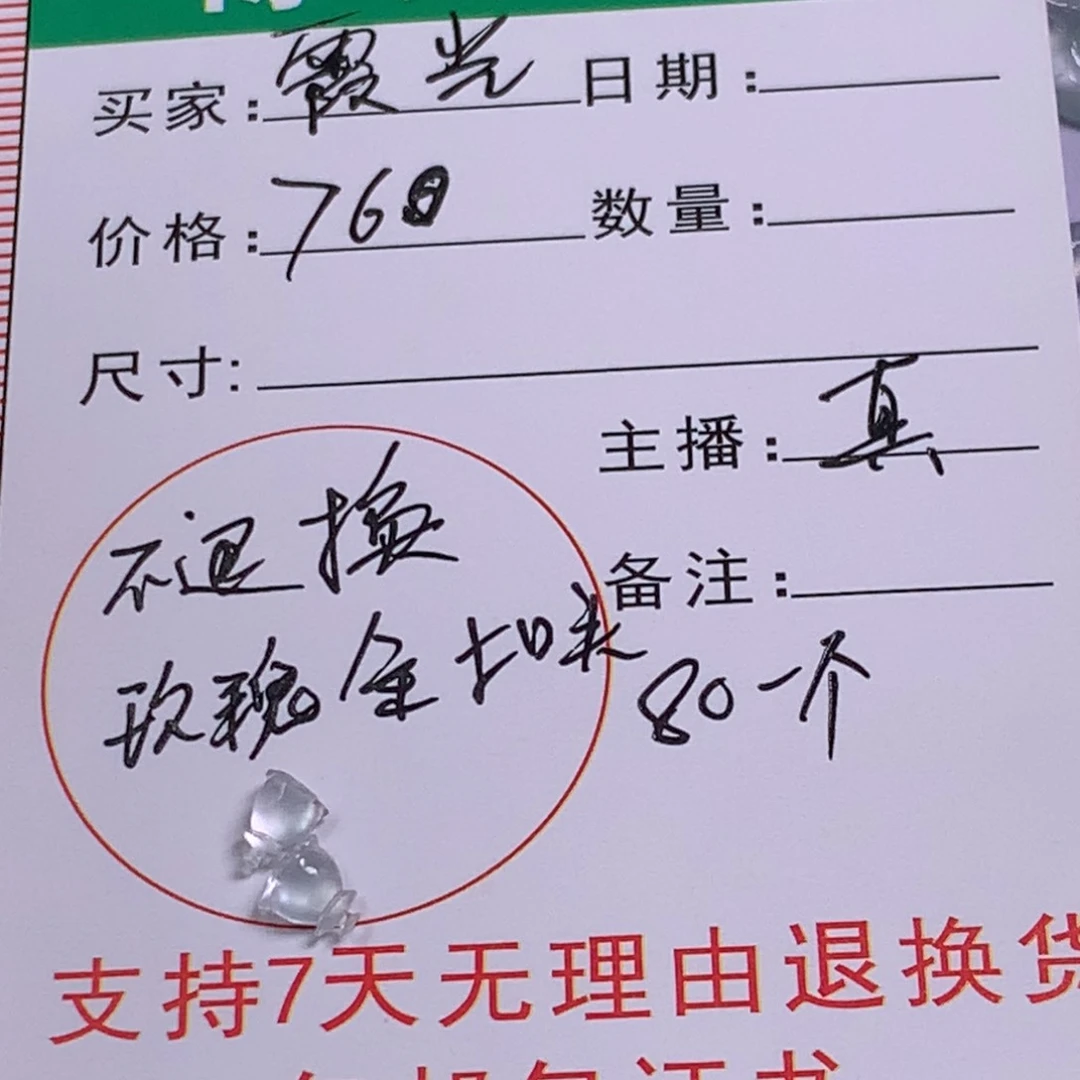 买家：霞光 日期：
价格：760 数量：
尺寸：
主播：真
不退换
备注：
玫瑰金扣头 80一个
支持7天无理由退换货